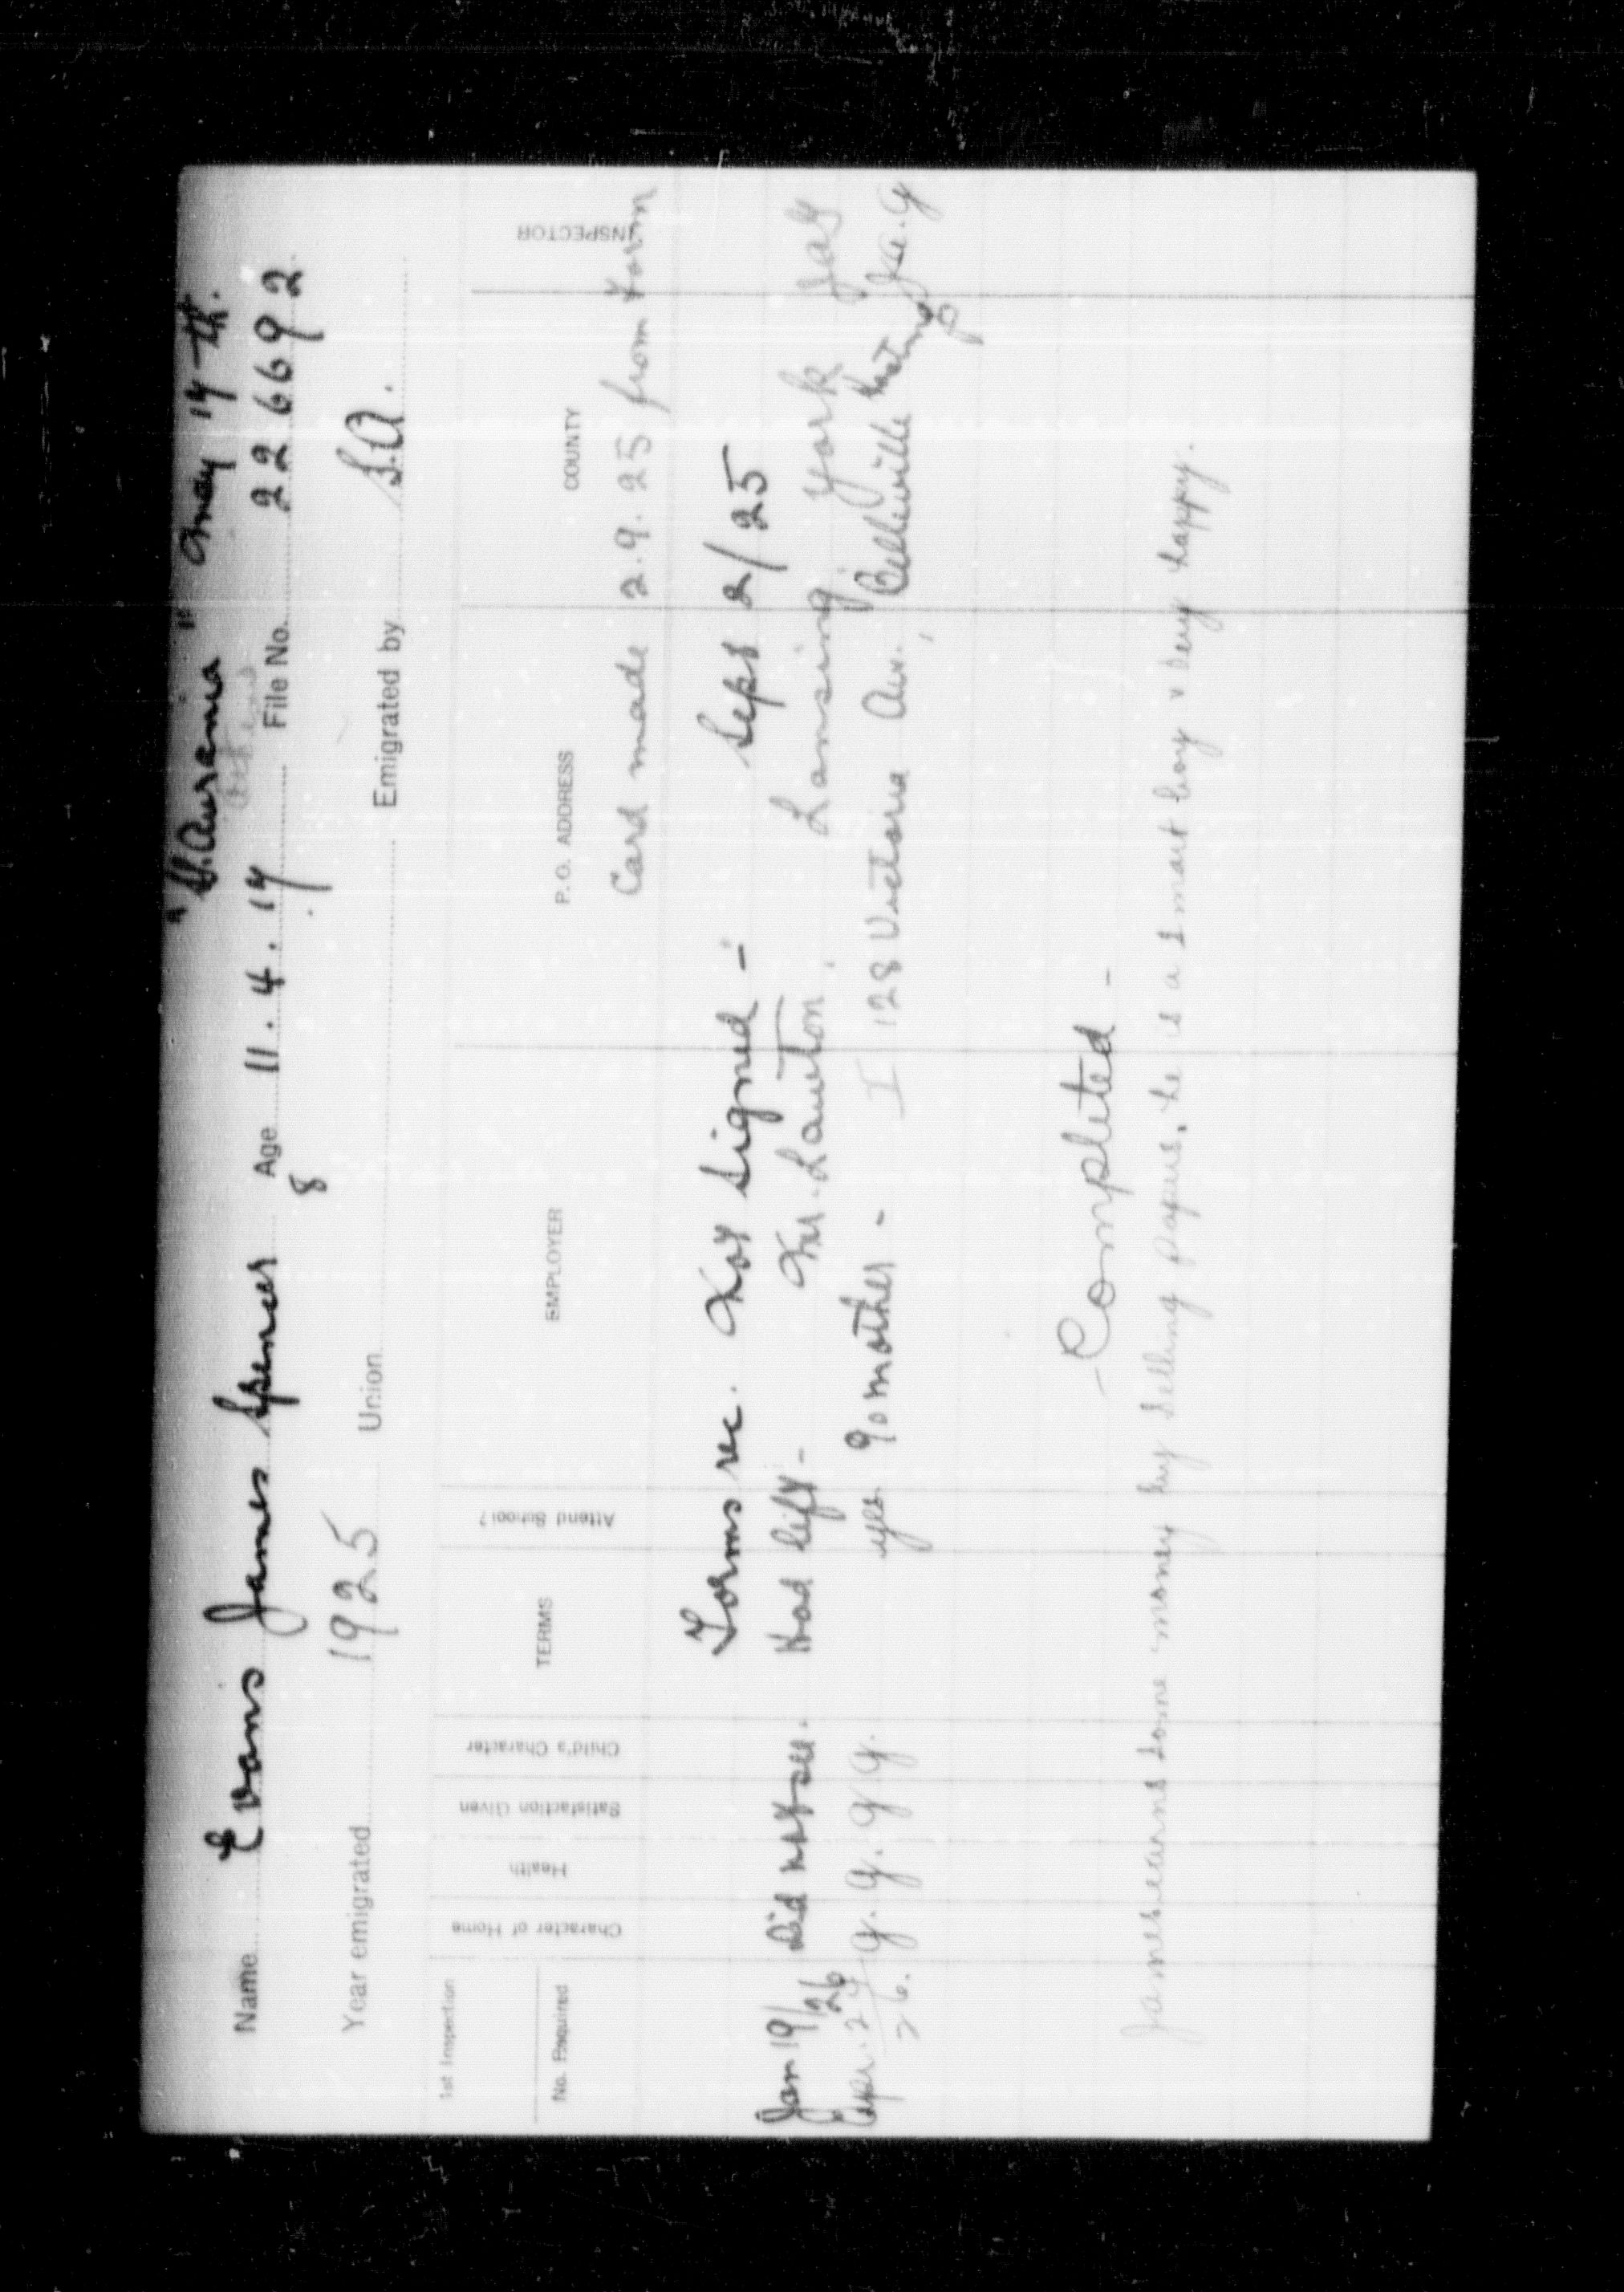 " S.S. Aurania " May 14th.
Name Evans James Spencer Age 11. 4. 14 File No. 226692
8
Year emigrated 1925 Union Emigrated by S.A.
1st Inspection
No. Required
Character of Home Health Satisfaction Given Child's Character TERMS Attend School? EMPLOYER P. O. ADDRESS COUNTY INSPECTOR
Card made 2.9.25 from Form
Forms rec. Not Signed - Sept 2/25
Jan 19/26 Did not see. Had left - Mr. Lawton. Lansing York
Apr. 24/26. g. g. g. g. yes to mother - 128 Victoria Ave. Belleville Hastings
- Completed -
James earns some money by selling papers, he is a smart boy & very happy.